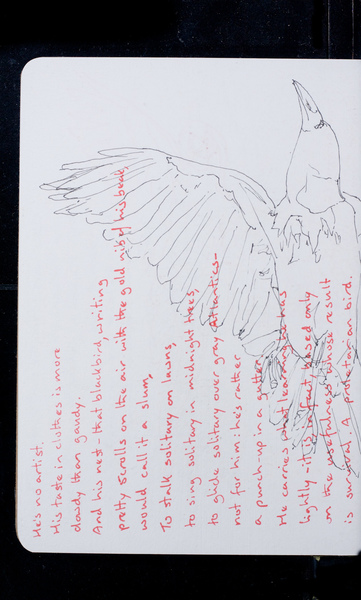 He's no artist.
His taste in clothes is more
dowdy than gaudy.
And his nest – that blackbird, writing
pretty scrolls on the air with the gold nib of his beak,
would call it a slum.
To stalk solitary on lawns,
to sing solitary in midnight trees,
to glide solitary over gray Atlantics –
not for him: he's rather
a punch-up in a gutter.
He carries what learning he has
lightly – it is, in fact, based only
on the usefulness whose result
is survival. A proletarian bird.